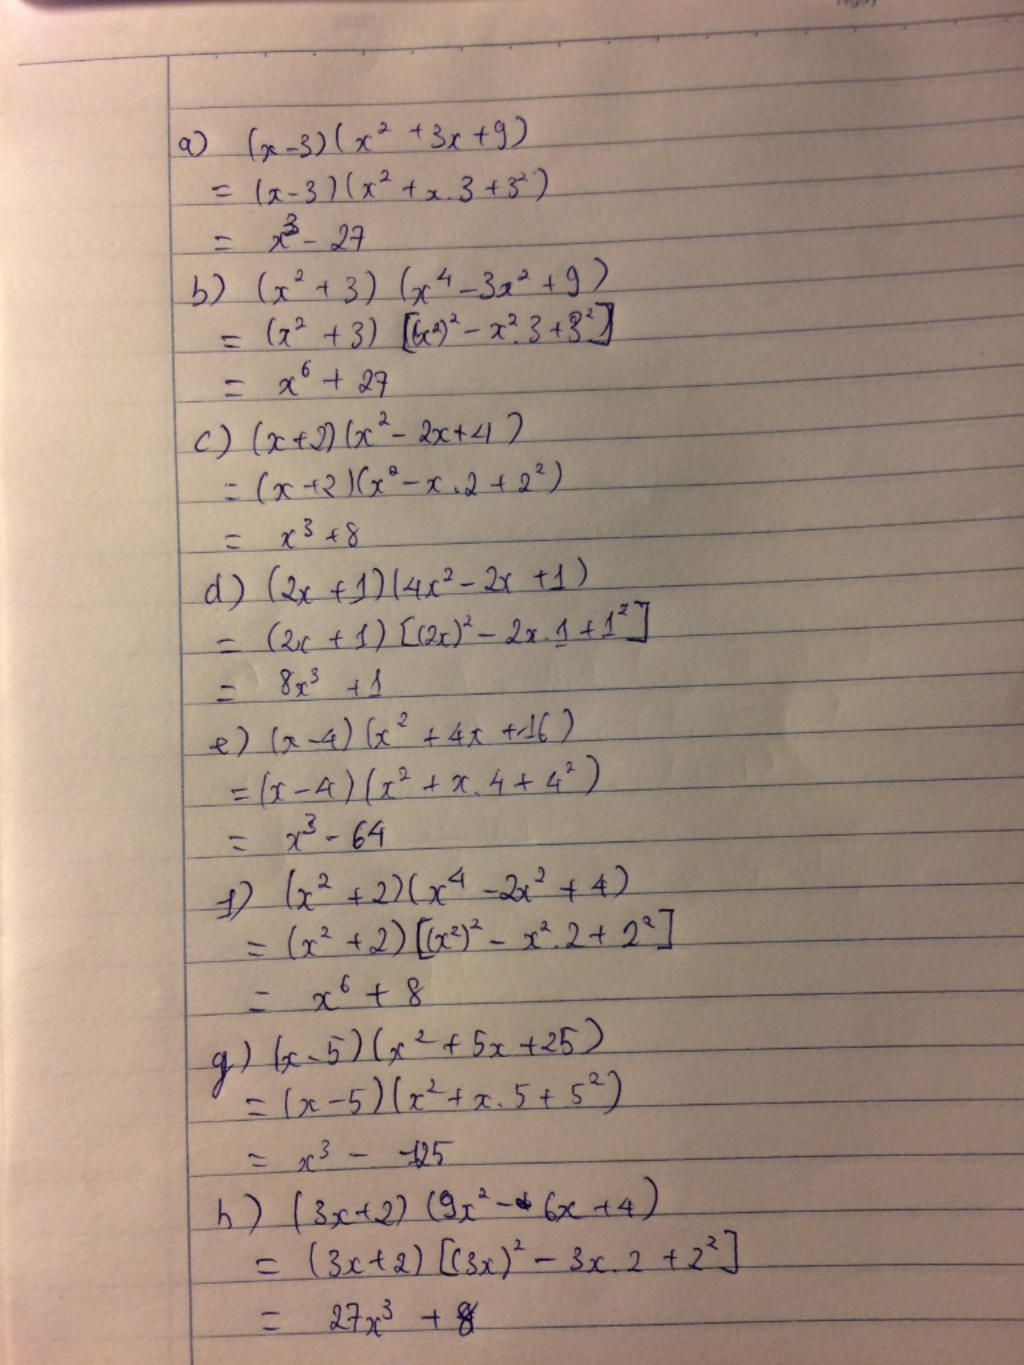 a) (x-3)(x² + 3x + 9)
= (x-3)(x² + x.3 + 3²)
= x³ - 27
b) (x² + 3) (x⁴ - 3x² + 9)
= (x² + 3) [(x²)² - x².3 + 3²]
= x⁶ + 27
c) (x+2)(x² - 2x + 4)
= (x+2)(x² - x.2 + 2²)
= x³ + 8
d) (2x + 1)(4x² - 2x + 1)
= (2x + 1) [(2x)² - 2x.1 + 1²]
= 8x³ + 1
e) (x-4)(x² + 4x + 16)
= (x-4)(x² + x.4 + 4²)
= x³ - 64
f) (x² + 2)(x⁴ - 2x² + 4)
= (x² + 2) [(x²)² - x².2 + 2²]
= x⁶ + 8
g) (x-5)(x² + 5x + 25)
= (x-5)(x² + x.5 + 5²)
= x³ - 125
h) (3x+2) (9x² - 6x + 4)
= (3x+2) [(3x)² - 3x.2 + 2²]
= 27x³ + 8